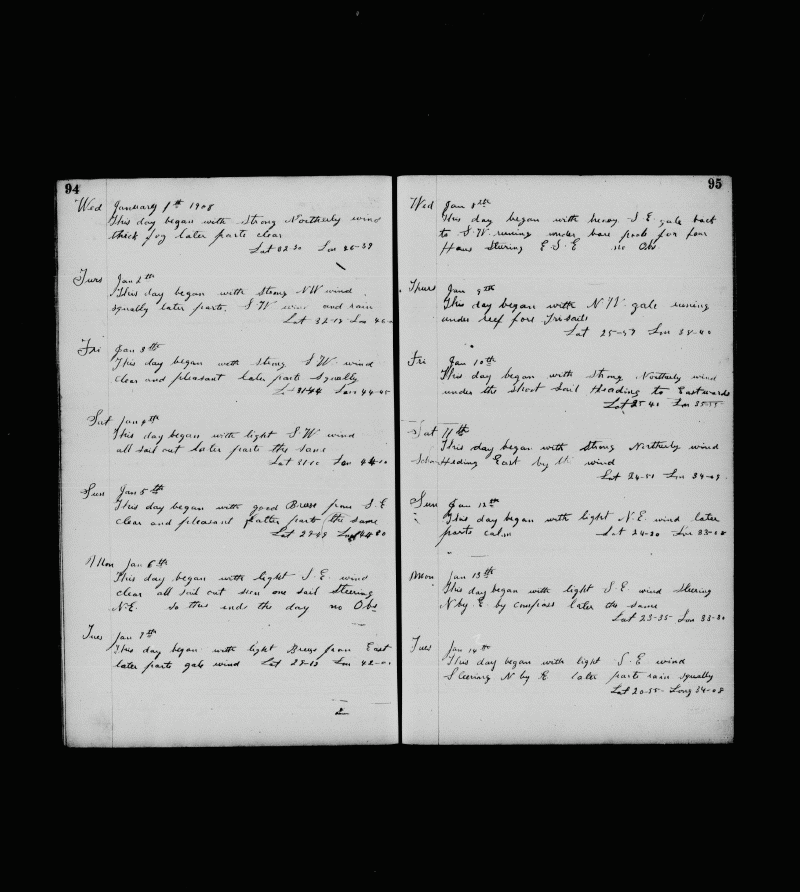 94
Wed January 1st 1908
This day began with Strong Northerly wind
thick fog later parts clear
Lat 32-30 Lon 50-39
Turs Jan 2th
This day began with Strong NW wind
squally later parts. S W wind and rain
Lat 32-12 Lon 46-
Fri Jan 3th
This day began with Strong S W wind
clear and pleasant later parts Squally
Lat 31-44 Lon 44-45
Sat Jan 4th
This day began with light S W wind
all sail out later parts the same
Lat 31-10 Lon 44-10
Sun Jan 5th
This day began with good Breese from S. E
clear and pleasant latter parts the same
Lat 29-49 Lon 44-80
Mon Jan 6th
This day began with light S. E. wind
clear all sail out seen one sail Steering
N. E. so thus ends the day no Obs
Tues Jan 7th
This day began with light Breese from East
later parts gale wind Lat 28-12 Lon 42-0
95
Wed Jan 8th
This day began with heavy S. E. gale back
to S. W. runing under bare pools for four
Hours Stering E S. E no Obs
Thurs Jan 9th
This day began with N. W. gale runing
under reef fore Trisails
Lat 25-57 Lon 38-40
Fri Jan 10th
This day began with Strong Northerly wind
under the Short Sail Heading to Eastwards
Lat 25-41 Lon 35-55
Sat 11th
This day began with Strong Northerly wind
Heding East by the wind
Lat 24-51 Lon 34-09
Sun Jan 12th
This day began with light N. E. wind later
parts calm Lat 24-30 Lon 33-08
Mon Jan 13th
This day began with light S. E. wind Steering
N by E by compass later the same
Lat 23-35 Lon 33-30
Tues Jan 14th
This day began with light S. E wind
Steering N by E later parts rain squally
Lat 20-55 Long 34-08